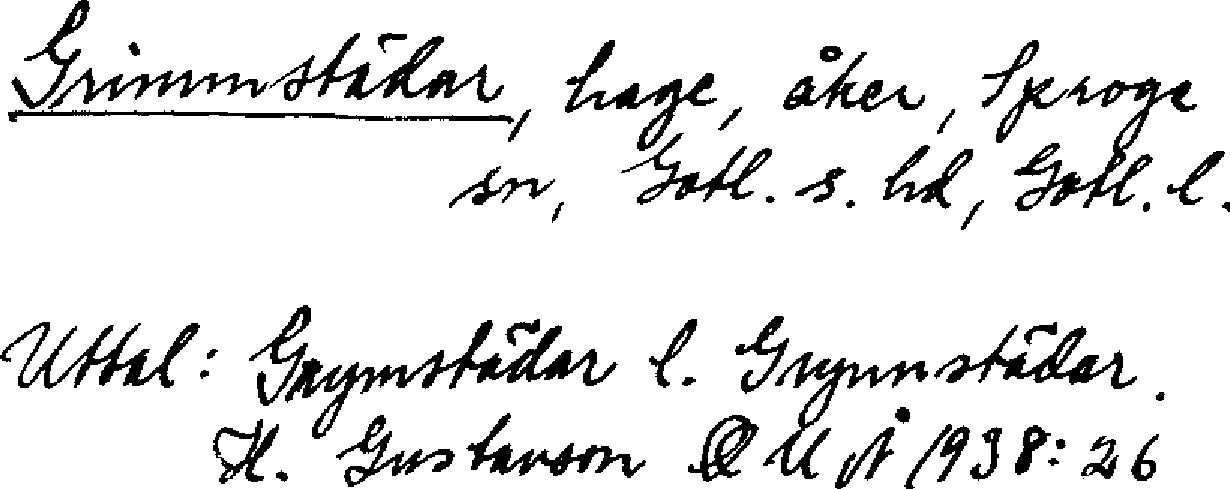 Grimmstädar, hage, åker, Sproge
sn, Gotl. s. hd, Gotl. l.
Uttal: Grymstädar l. Grynnstädar.
H. Gustavson UÅ 1938: 26